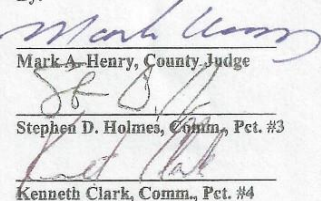 Mark A. Henry, County Judge
Stephen D. Holmes, Comm., Pct. #3
Kenneth Clark, Comm., Pct. #4